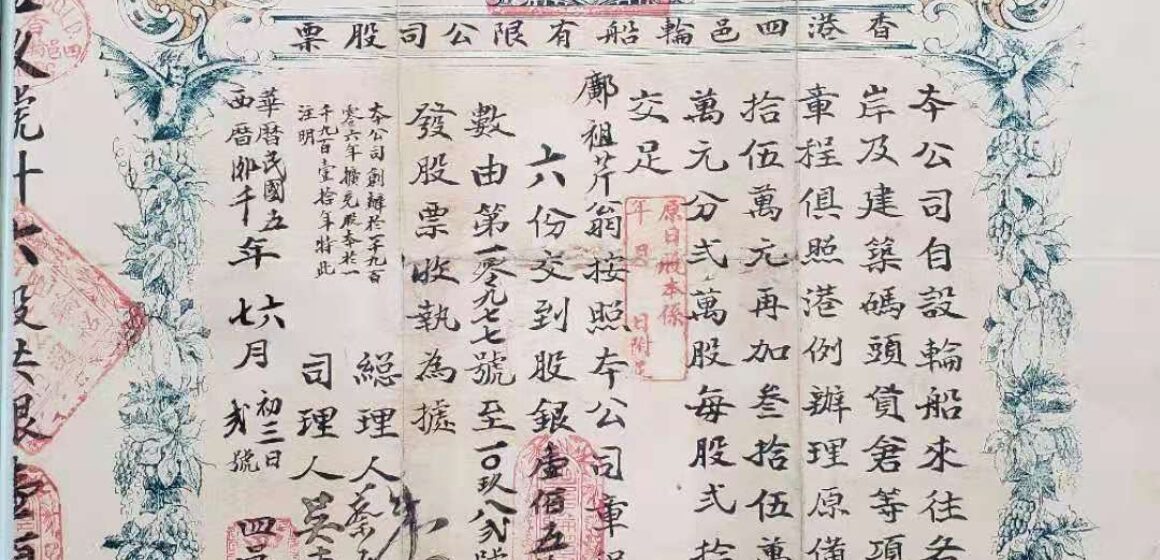 香港四邑輪船有限公司股票
本公司自設輪船來往各
岸及建築碼頭貨倉等項
章程俱照港例辦理原備
拾伍萬元再加叁拾伍萬
萬元分弍萬股每股弍拾
交足
原日股本係
年 月 日附足
鄺祖芹翁按照本公司章
六份交到股銀壹佰五
數由第一零九七七號至一〇九八弍號
發股票收執為據
本公司創辦於一千九百
零六年擴充股本於一
千九百壹拾年特此
注明
總理人蔡
司理人吳
華曆民國五年六月初三日
西曆 千 年七月弍號
號十六股共銀壹